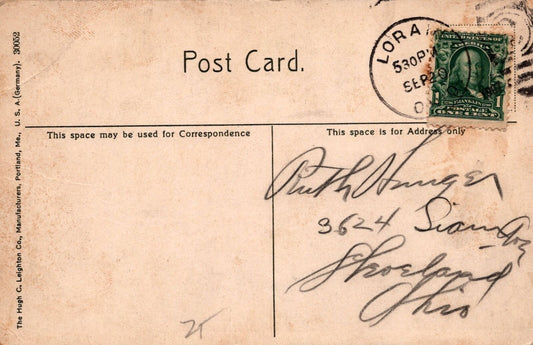 Post Card.
LORAIN
530 PM
SEP 20
O.
UNITED STATES OF
AMERICA
FRANKLIN
1 1
POSTAGE
ONE CENT
This space may be used for Correspondence
This space is for Address only
Ruth Hunger
3624 Ave
Cleveland
Ohio
25
The Hugh C. Leighton Co., Manufacturers, Portland, Me., U. S. A. (Germany). 30052